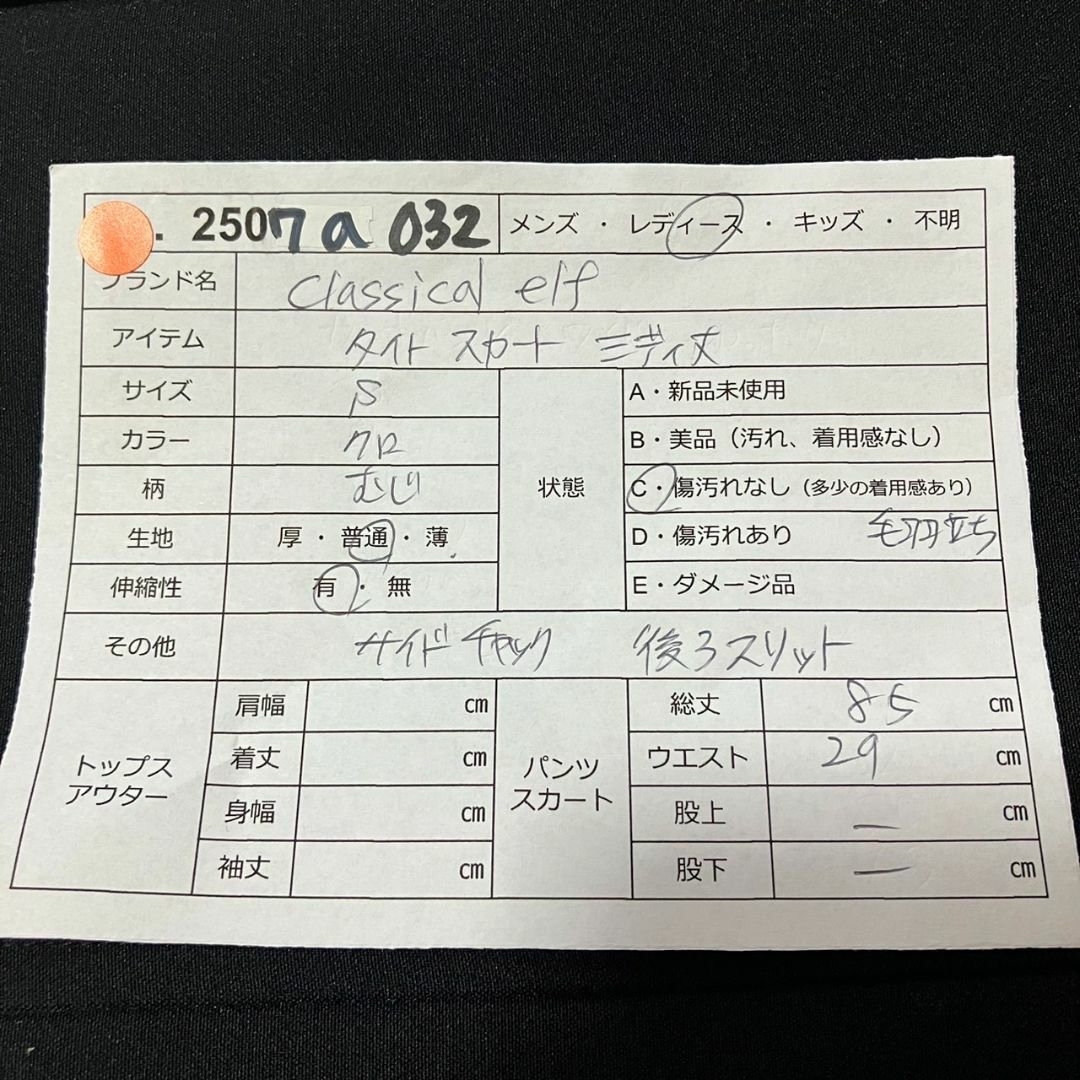 . 2507a032 メンズ ・ レディース ・ キッズ ・ 不明
ブランド名 classical elf
アイテム タイトスカート ミディ丈
サイズ S
カラー クロ
柄 むじ
生地 厚 ・ 普通 ・ 薄
伸縮性 有 ・ 無
状態
A・新品未使用
B・美品（汚れ、着用感なし）
C・傷汚れなし（多少の着用感あり）
D・傷汚れあり 毛羽立ち
E・ダメージ品
その他 サイドチャック 後ろスリット
トップス
アウター
肩幅 cm
着丈 cm
身幅 cm
袖丈 cm
パンツ
スカート
総丈 85 cm
ウエスト 29 cm
股上 ー cm
股下 ー cm